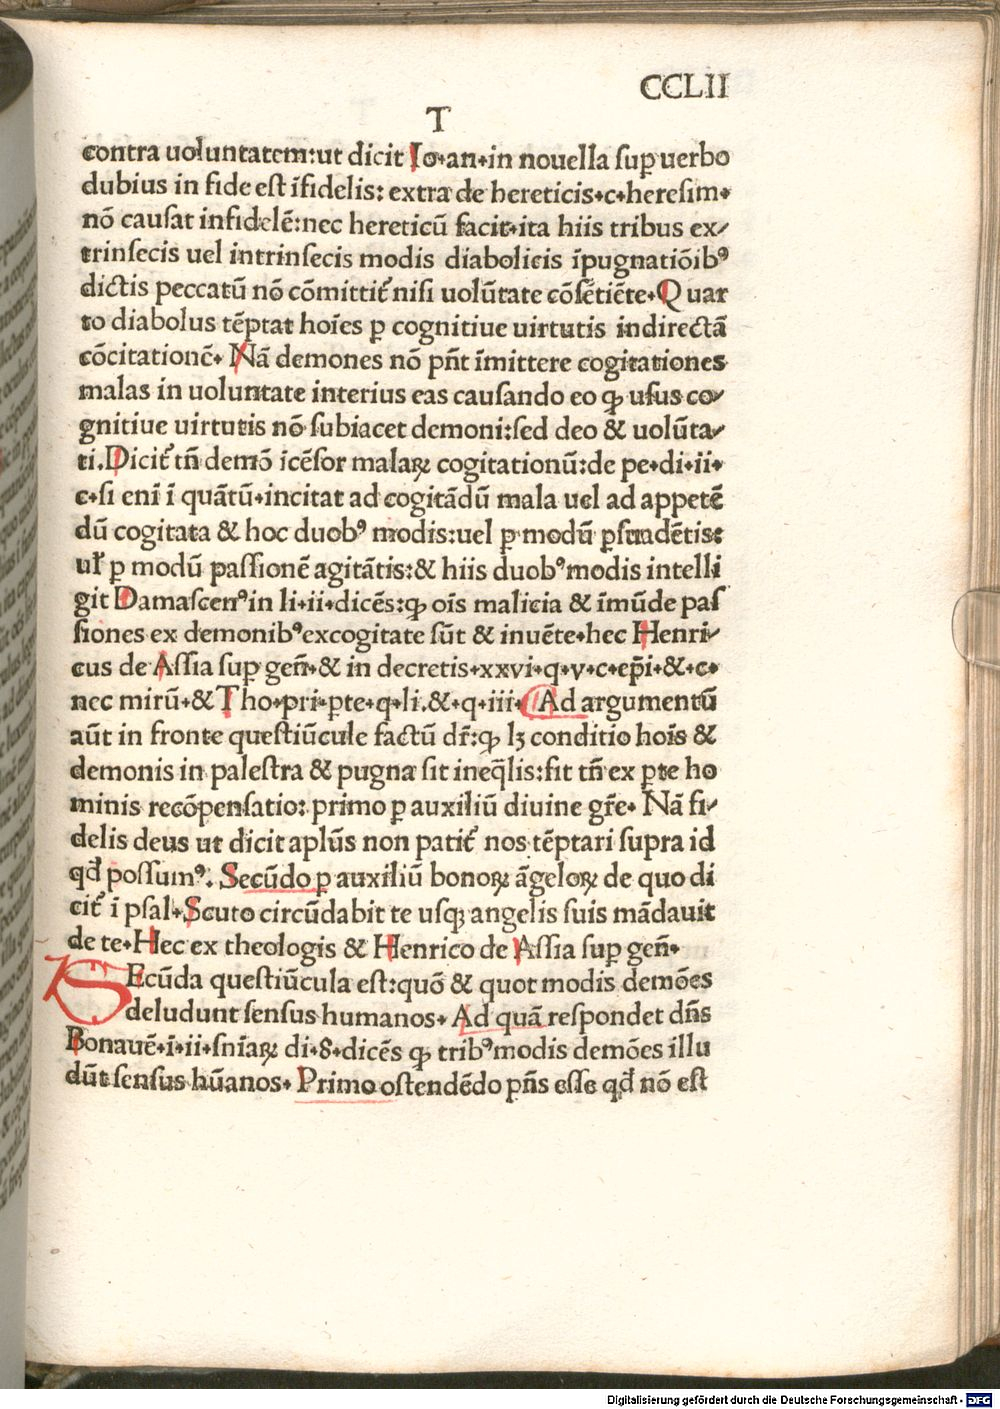 CCLII
T
contra uoluntatem:ut dicit Io·an·in nouella sup̱ uerbo
dubius in fide est ĩfidelis: extra de hereticis·c·heresim·
nõ causat infidelẽ:nec hereticũ facit·ita hiis tribus ex⸗
trinsecis uel intrinsecis modis diabolicis ĩpugnatiõibꝰ
dictis peccatũ nõ cõmittit᷑ nisi uolũtate cõsẽtiẽte·Quar
to diabolus tẽptat hoĩes ꝑ cognitiue uirtutis indirectã
cõcitationẽ· Nã demones nõ pñt ĩmittere cogitationes
malas in uoluntate interius eas causando eo ꝙ usus co⸗
gnitiue uirtutis nõ subiacet demoni:sed deo & uolũta⸗
ti.Dicit᷑ tñ demõ ĩcẽsor malaꝝ cogitationũ:de pe·di·ii·
c·si enĩ ĩ quãtũ·incitat ad cogitãdũ mala uel ad appetẽ
dũ cogitata & hoc duobꝰ modis:uel ꝑ modũ ꝑsuadẽtis:
ul̃ ꝑ modũ passionẽ agitãtis:& hiis duobꝰ modis intelli
git Damascenꝰ in li·ii·dicẽs:ꝙ oĩs malicia & ĩmũde pas
siones ex demonibꝰ excogitate sũt & inuẽte·hec Henri⸗
cus de Assia sup̱ geñ·& in decretis·xxvi·q·v·c·ep̃i·&·c·
nec mirũ·& Tho·pri·ꝑte·q·li.&·q·iii· Ad argumentũ
aũt in fronte questiũcule factũ dr̃:ꝙ lꝫ conditio hoĩs &
demonis in palestra & pugna sit ineq̃lis:fit tñ ex ꝑte ho
minis recõpensatio: primo ꝑ auxiliũ diuine gr̃e· Nã fi⸗
delis deus ut dicit apl̃us non patit᷑ nos tẽptari supra id
qď possumꝰ. Secũdo ꝑ auxiliũ bonoꝝ ãgeloꝝ de quo di
cit᷑ ĩ psal·Scuto circũdabit te usqꝫ angelis suis mãdauit
de te·Hec ex theologis & Henrico de Assia sup̱ geñ·
SEcũda questiũcula est:quõ & quot modis demões
deludunt sensus humanos· Ad quã respondet dñs
Bonauẽ·i·ii·snĩaꝝ di·8·dicẽs ꝙ tribꝰ modis demões illu
dũt sensus hũanos· Primo ostendẽdo pñs esse qď nõ est
Digitalisierung gefördert durch die Deutsche Forschungsgemeinschaft - DFG